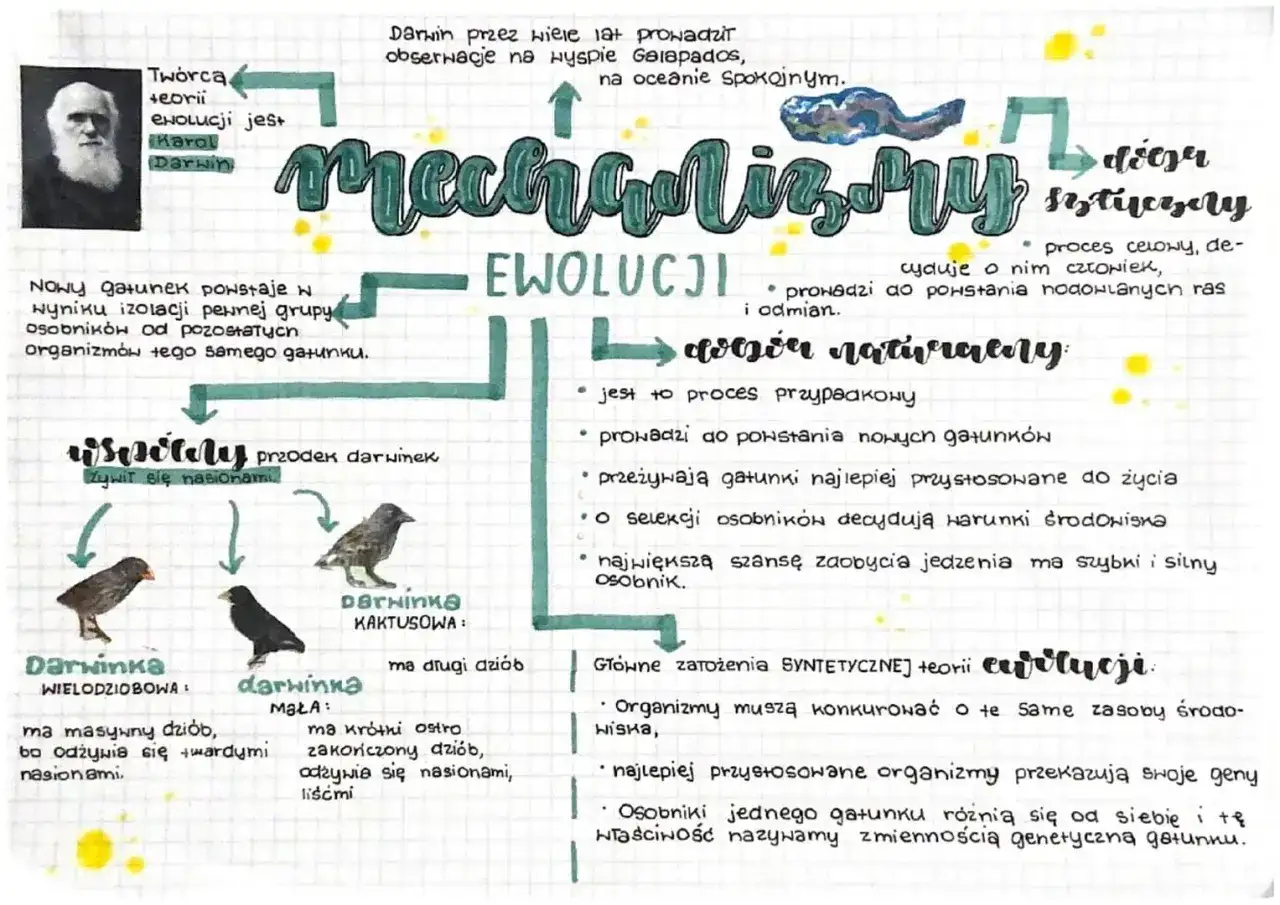 Darwin przez wiele lat prowadził
obserwacje na wyspie Galapados,
na oceanie Spokojnym.
Twórcą
teorii
ewolucji jest
Karol
Darwin
mechanizmy
EWOLUCJI
dobór
sztuczny
• proces celowy, de-
cyduje o nim człowiek,
• prowadzi do powstania hodowlanych ras
i odmian.
Nowy gatunek powstaje w
wyniku izolacji pewnej grupy
osobników od pozostałych
organizmów tego samego gatunku.
dobór naturalny:
• jest to proces przypadkowy
• prowadzi do powstania nowych gatunków
• przeżywają gatunki najlepiej przystosowane do życia
• o selekcji osobników decydują warunki środowiska
• największą szansę zdobycia jedzenia ma szybki i silny
osobnik.
wspólny przodek darwinek
żywił się nasionami.
Darwinka
KAKTUSOWA:
ma długi dziób
Darwinka
WIELODZIOBOWA:
ma masywny dziób,
bo odżywia się twardymi
nasionami.
darwinka
MAŁA:
ma krótki ostro
zakończony dziób,
odżywia się nasionami,
liśćmi
Główne założenia SYNTETYCZNEJ teorii ewolucji.
• Organizmy muszą konkurować o te same zasoby środo-
wiska,
• najlepiej przystosowane organizmy przekazują swoje geny
• Osobniki jednego gatunku różnią się od siebie i tę
właściwość nazywamy zmiennością genetyczną gatunku.